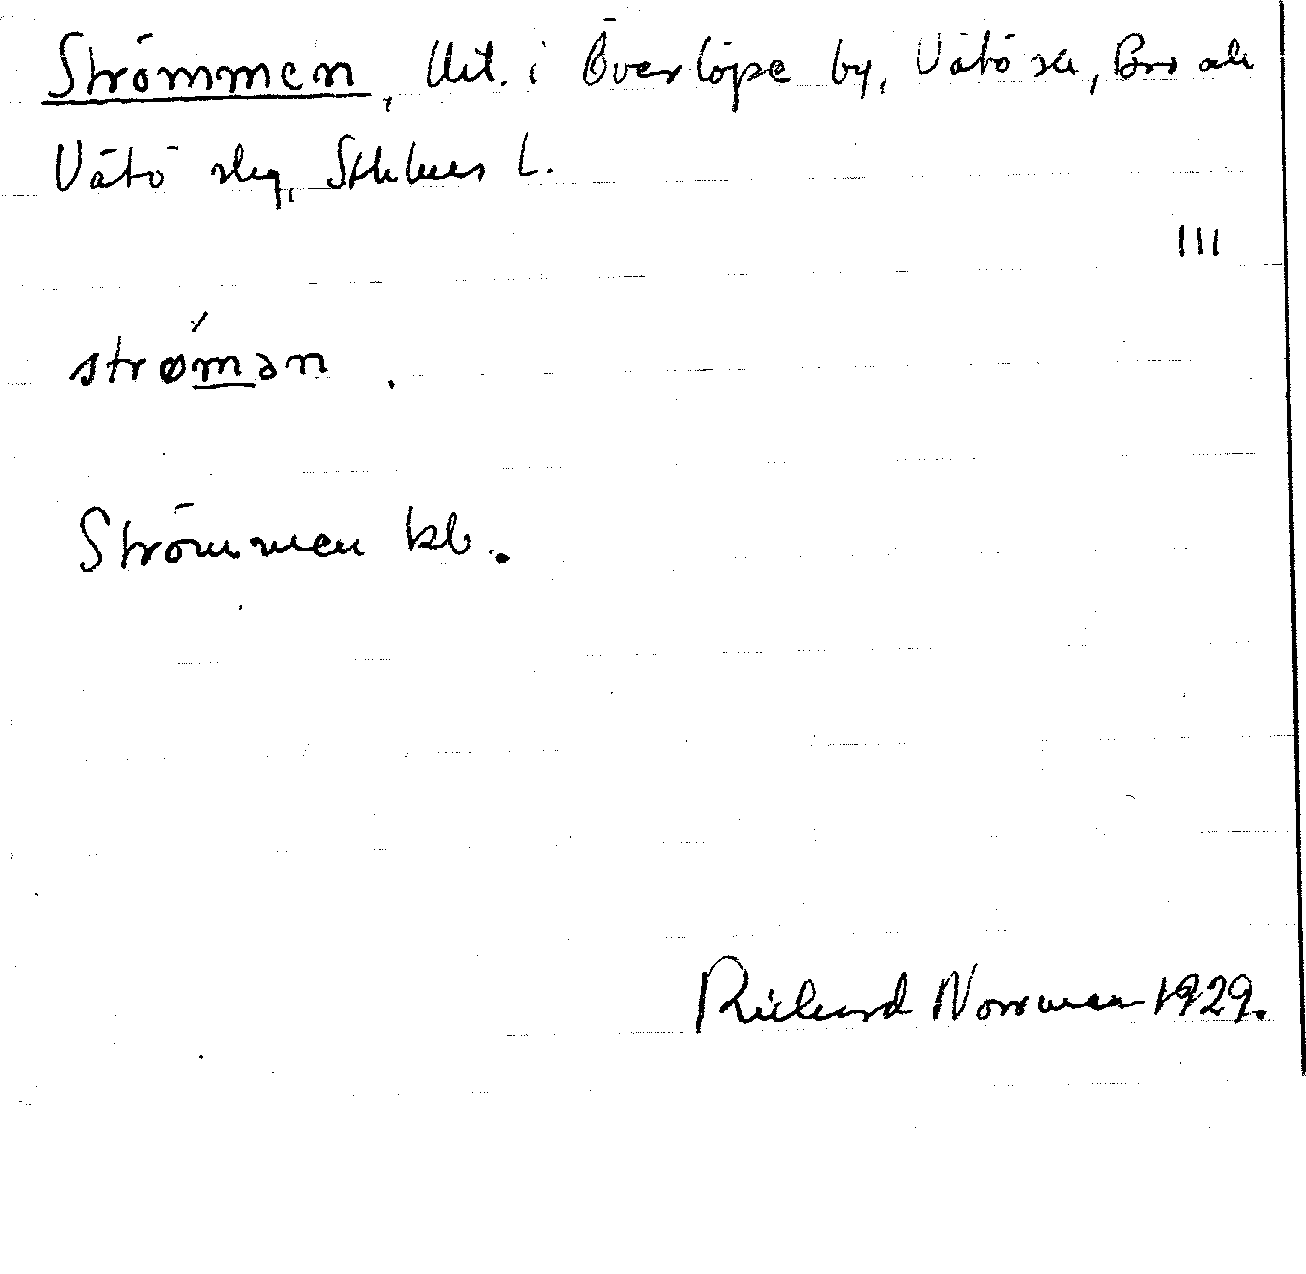 Strömmen, lht. i Överlöpe by, Vätö sn, Bro och
Vätö slg, Sthlms l.
III
strømən .
Strömmen kb.
Richard Norrman 1929.